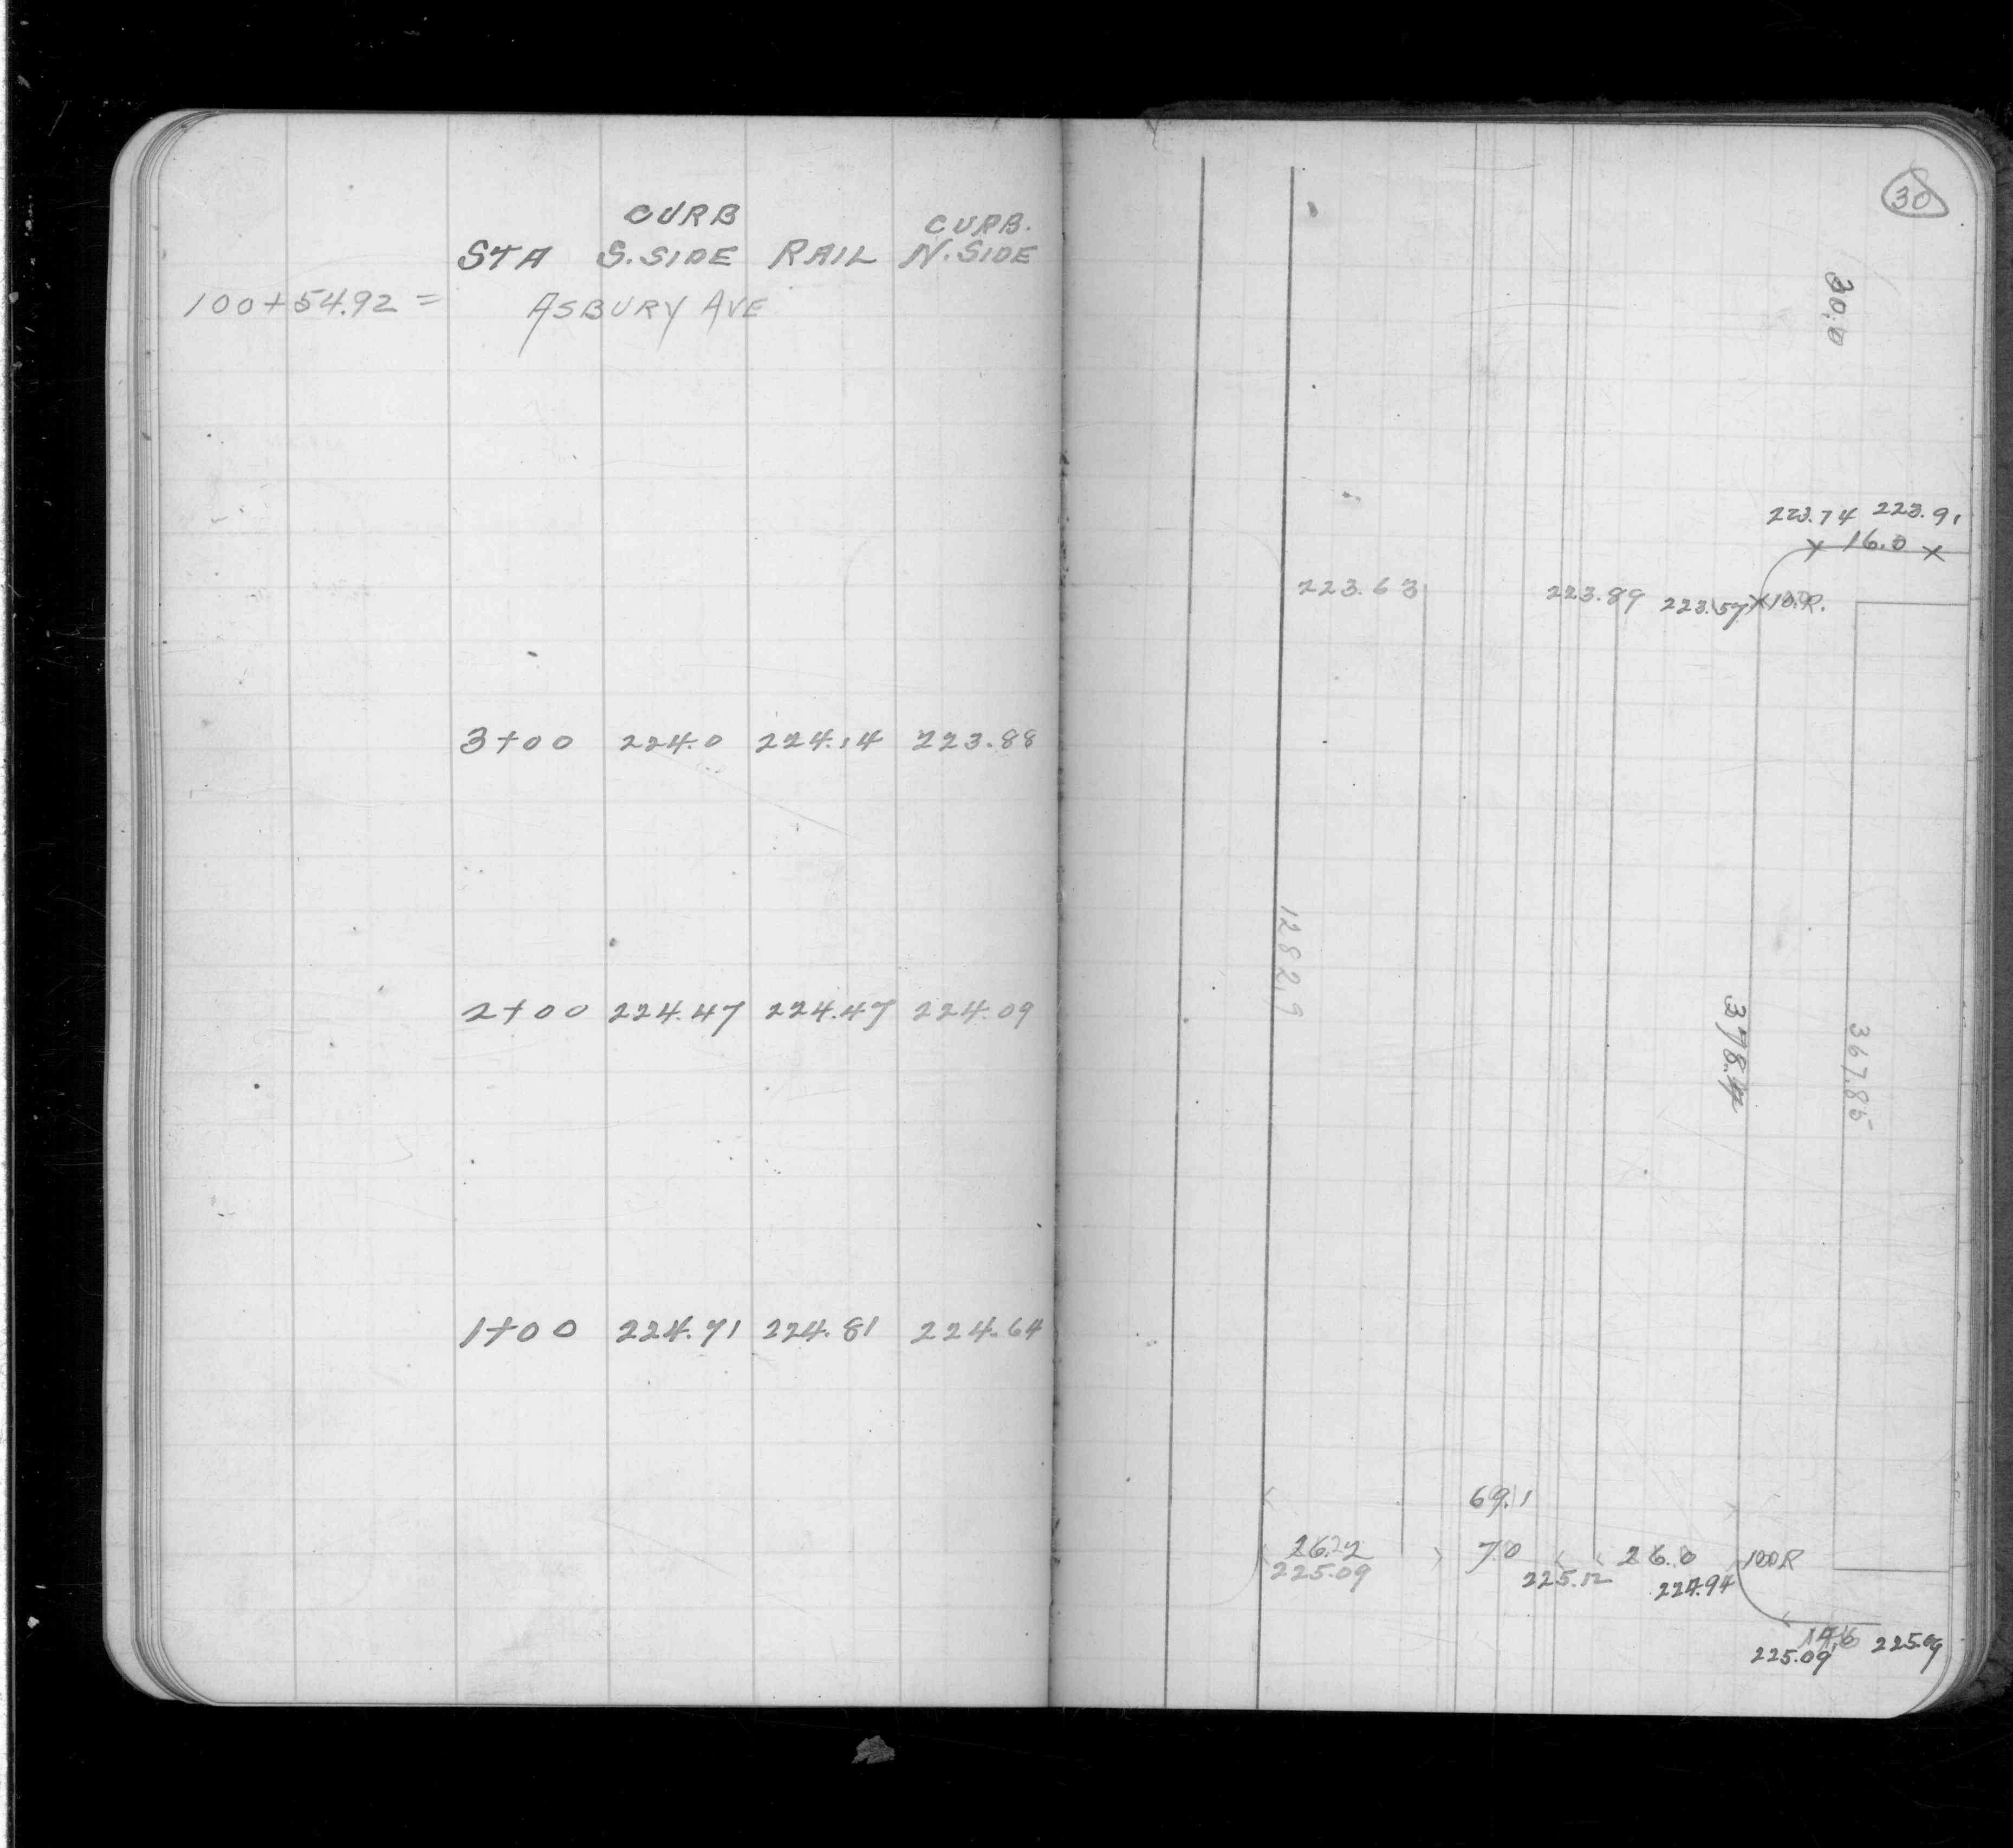 CURB CURB.
STA S.SIDE RAIL N.SIDE
100+54.92 = ASBURY AVE
3+00 224.0 224.14 223.88
2+00 224.47 224.47 224.09
1+00 224.71 224.81 224.64
30
30.0
223.74 223.91
16.0
223.63 223.89 223.57 10.R.
1282.9
378.4
367.85
69.1
26.2 7.0 26.0 10.0R
225.09 225.12 224.94
14.6
225.09 225.09